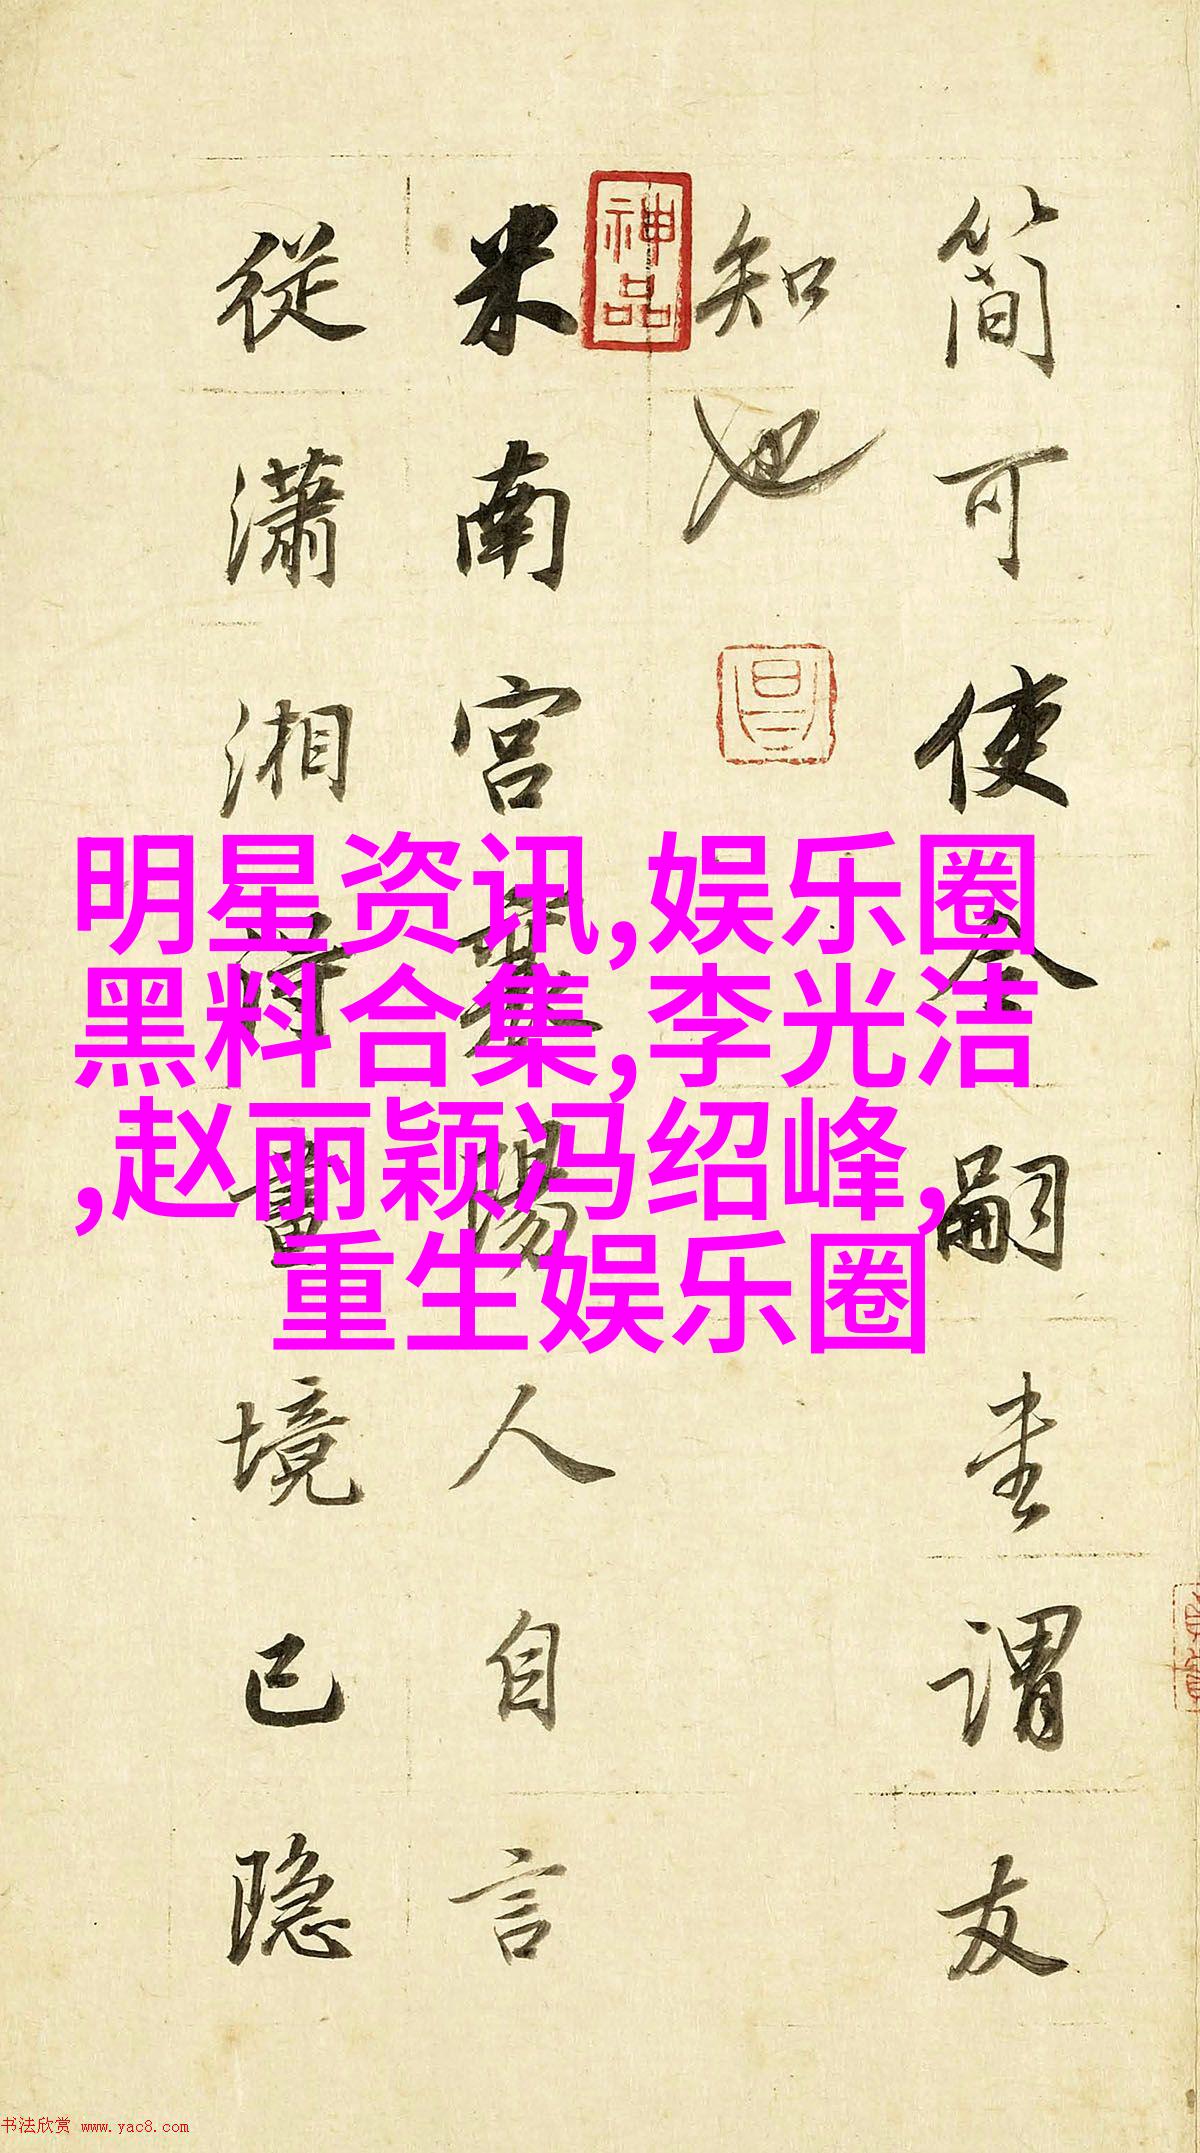 簡可使嗣謂友
知也
神品
昌
米南宮襄陽人自言
從瀟湘得畫境已隱
明星资讯,娱乐圈
黑料合集,李光洁
,赵丽颖冯绍峰,
重生娱乐圈
书法欣赏 www.yac8.com